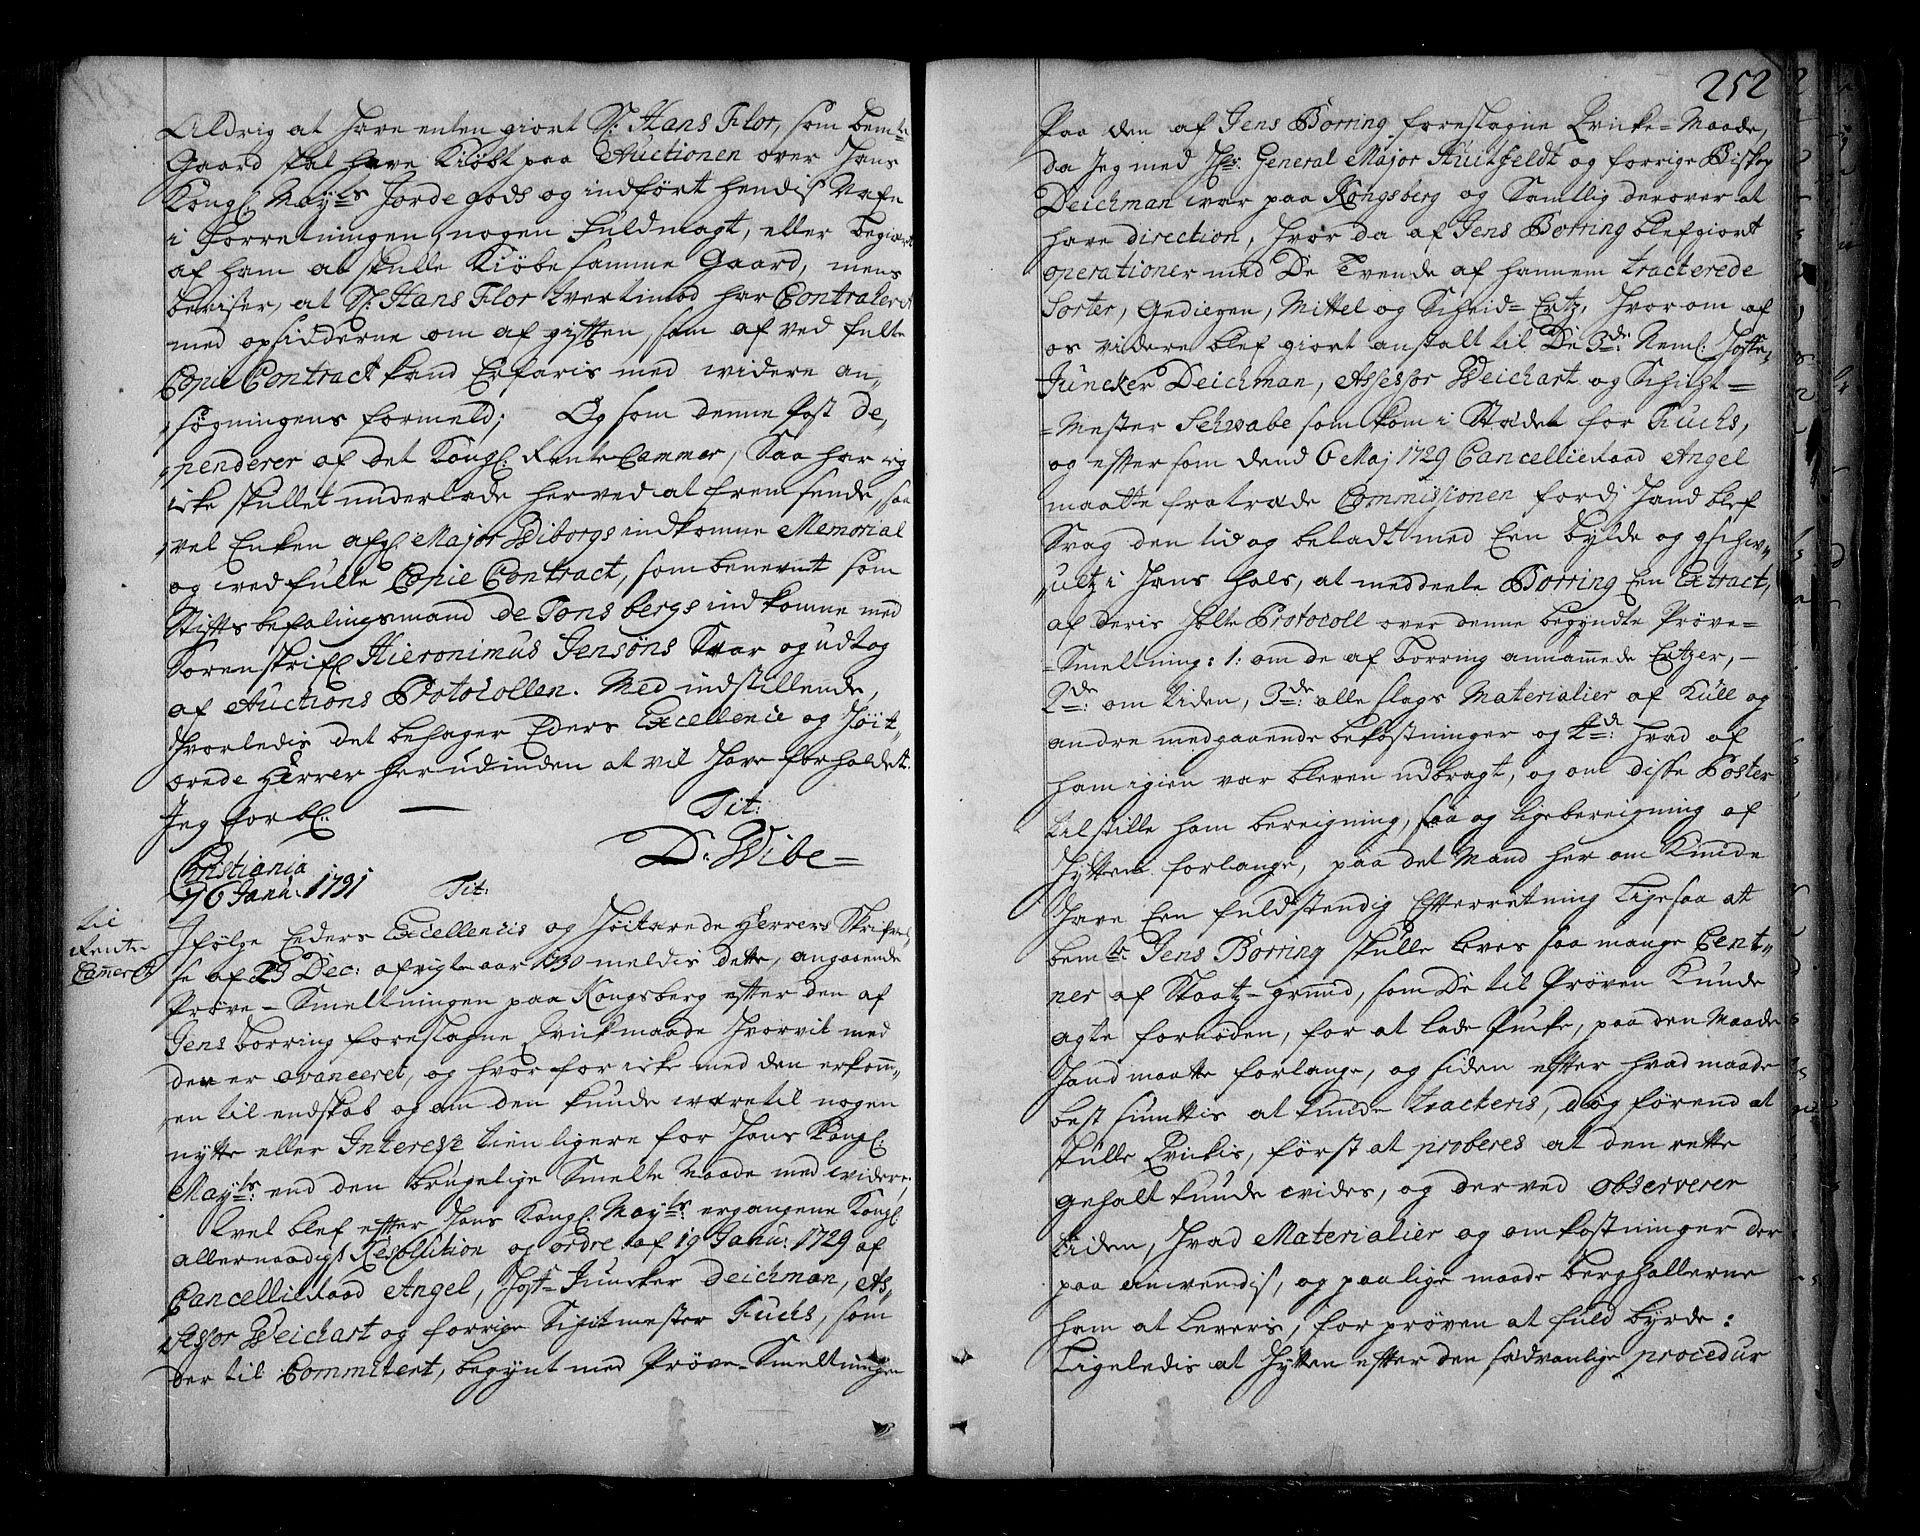 Aldrig at have enten giort Sr. Hans Flor, som bemte
Gaard skal have Kiøbt paa Auctionen over Hans
Kongl. Mayts Jordegods og indført hendis Nafn
i Forretningen, nogen Fuldmagt, eller begiært
af ham at skulle Kiøbe samme Gaard, mens
beviser, at Sr. Hans Flor tvertimod har Contraheret
med opsidderne om afgifften, som af ved fulte
Copie Contract kand Erfaris med widere an-
søgningens formeld; Og som denne Post de-
penderer af det Kongl. Rente Cammer, Saa har ieg
icke skullet underlade herved at fremsende, saa
vel Enken afg. Major Wiborgs indkomne Memorial
og wedfulte Copie Contract, som benevnt som
Stiftsbefalingsmand de Tonsbergs indkomne med
Sorenskrifr. Hieronimus Jensøns Svar og udtog
af Auctions Protocollen. Med indstillende,
Hvorledis det behager Eders Excellence og Høit-
ærede Herrer herudinden at vil Have forholdet.
Jeg forbl: — Tit:
D. Wibe
Christiania
26 Janu: 1731 Tit:
til
Rente
Cameret
Ifølge Eders Excellencis og Høitærede Herrers Skrifvel-
se af 23 Dec: afvigte aar 1730 meldis dette, angaaende
Prøve-Smeltningen paa Kongsberg efter den af
Jens Borring foreslagne Qvickmaade Hvorvit med
den er avanceret, og hvorfor icke med den erkomm-
en til endskab og om den kunde være til nogen
nytte eller Interesse tienligere for Hans Kongl.
Mayts: end den brugelige Smelte Maade med widere,
Svel blef efter Hans Kongl. Mayts: ergangene Kongl.
allernaadigst Resolution og ordre af 19 Janu: 1729 af
Cancellieraad Angel, Hoff-Juncker Deichman, As-
sessor Weichart og forrige Sigtmester Fuchs, som
der til Committert, begynt med Prøve-Smeltningen
252
Paa den af Jens Borring foreslagne Qvicke-Maade,
da Jeg med Hr: General Major Huitfeldt og forrige Biskop
Deichman war paa Kongsberg og Samtlig derover at
have direction, Hvor da af Jens Borring blef giort
operationer med De Tvende af hannem tracterede
Sorter, Gediegen, Mittel og Scheid-Ertz, Hvorom af
os videre blef giort anstalt til De 3de: Neml: Hoff-
Juncker Deichman, Assessor Weichart og Schicht-
Mester Schwabe som kom i Stædet for Fuchs,
og eftersom dend 6 Maj 1729 Cancellieraad Angel
maatte fratræde Commissionen fordi Hand blef
Svag den tid og beladt med Een bylde og gschw-
ultz i Hans hals, at meddeele Borring Een Extract,
af deris holte Protocoll over denne begyndte Prøve-
Smeltning: 1: om de af Borring annammede Ertzer, —
2de: om Tiden, 3de: alle slags Materialier af Kull og
andre medgaaende bekostninger og 4de: Hvad af
ham igien var bleven udbragt, og om disse Poster
tilstille ham bereigning, saa og ligebereigning af
Hytten forlange, paa det Mand her om Kunde
Have Een fuldstendig Efterretning Ligesaa at
bemte: Jens Borring skulle loves saa mange Cent-
ner af Staatz-grund, som De til Prøven Kunde
agte fornøden, for at lade Pucke, paa den Maade
Hand maatte forlange, og siden efter hvad maade
best siuntis at kunde tracteris, dog førend at
skulle Qvickis, først at proberes at den rette
gehalt kunde vides, og derved observerer
Tiden, Hvad Materialier og omkostninger der
paa anvendis, og paa lige maade berghallerne
ham at Leveris, for prøven at fuldbyrde:
Ligeledis at Hytten efter den sædvanlige procedur